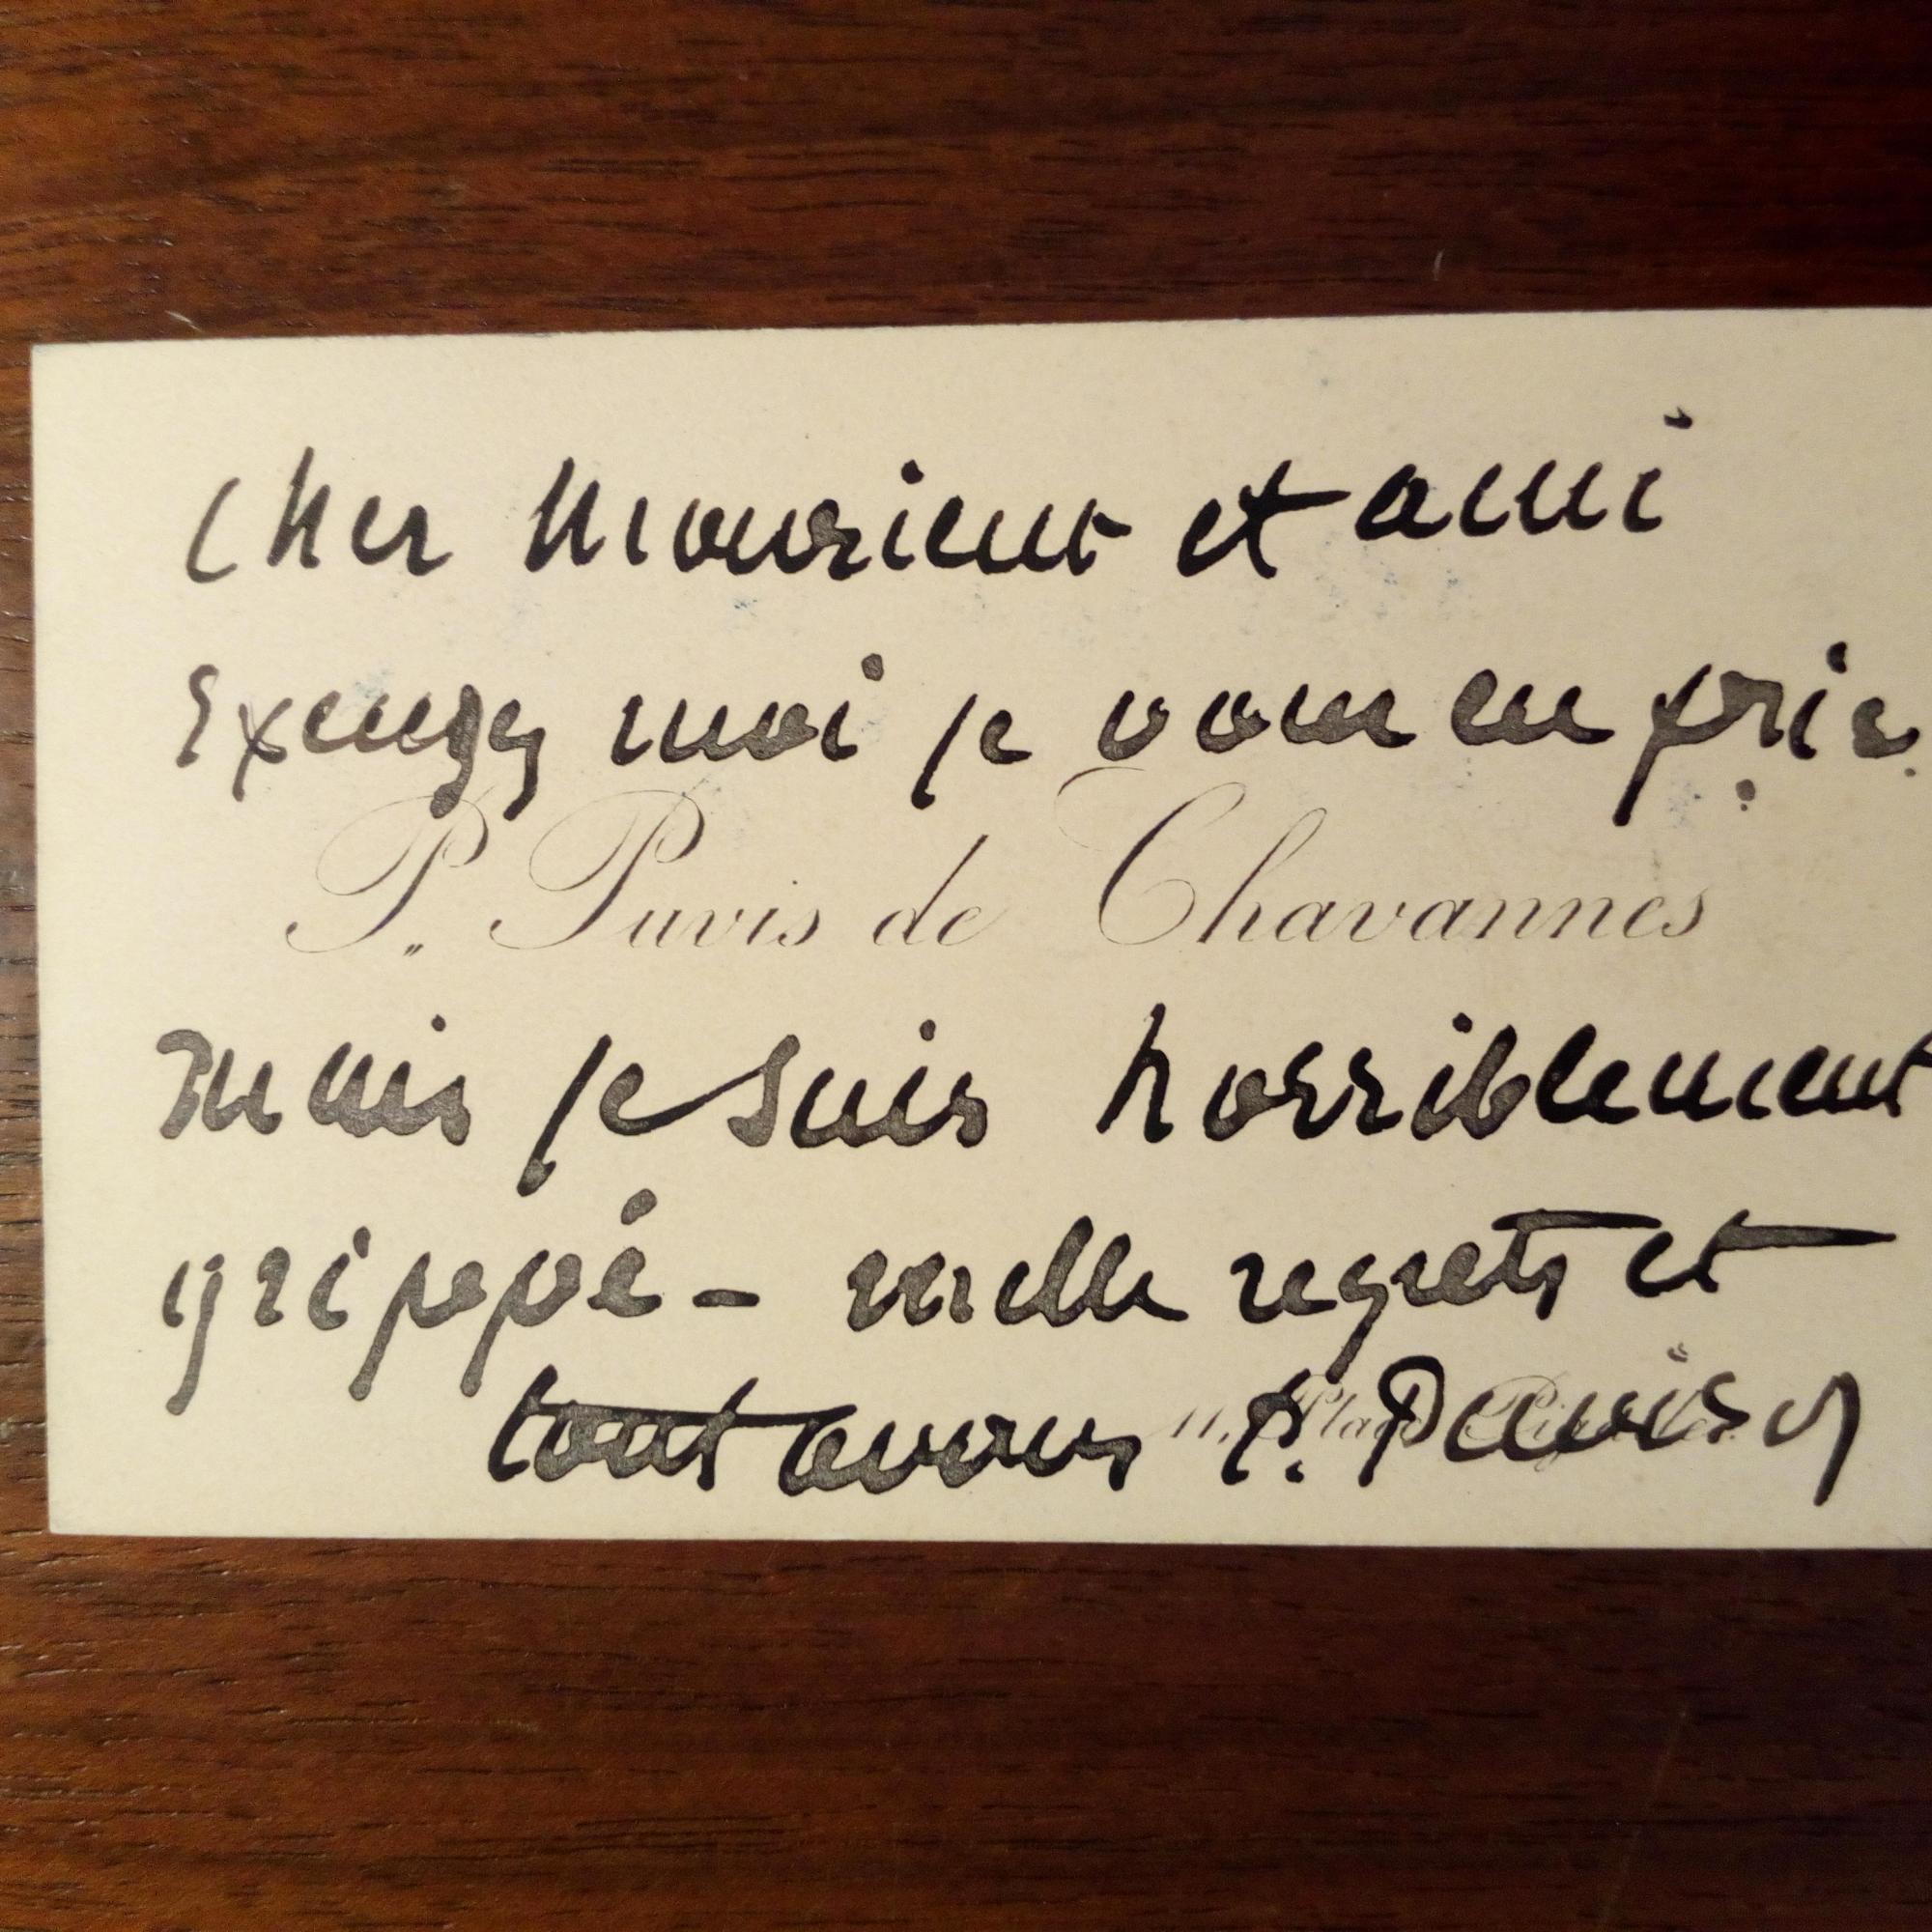 Cher Monsieur et ami
Excusez moi je vous en prie
P. Puvis de Chavannes
mais je suis horriblement
grippé – mille regrets et
tout à vous P. Puvis
11, Place Pigalle.